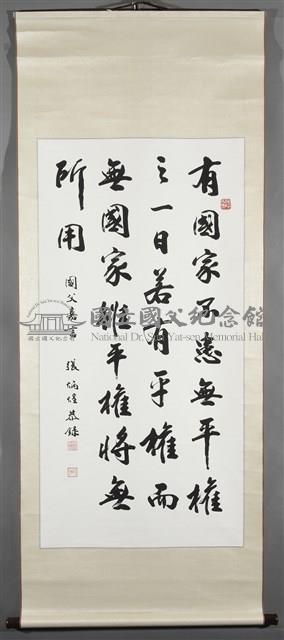 有國家不患無平權
之一日若有平權而
無國家雖平權將無
所用
國父嘉言
張炳煌恭錄
國立國父紀念館
國立國父紀念館
National Dr. Sun Yat-sen Memorial Hall